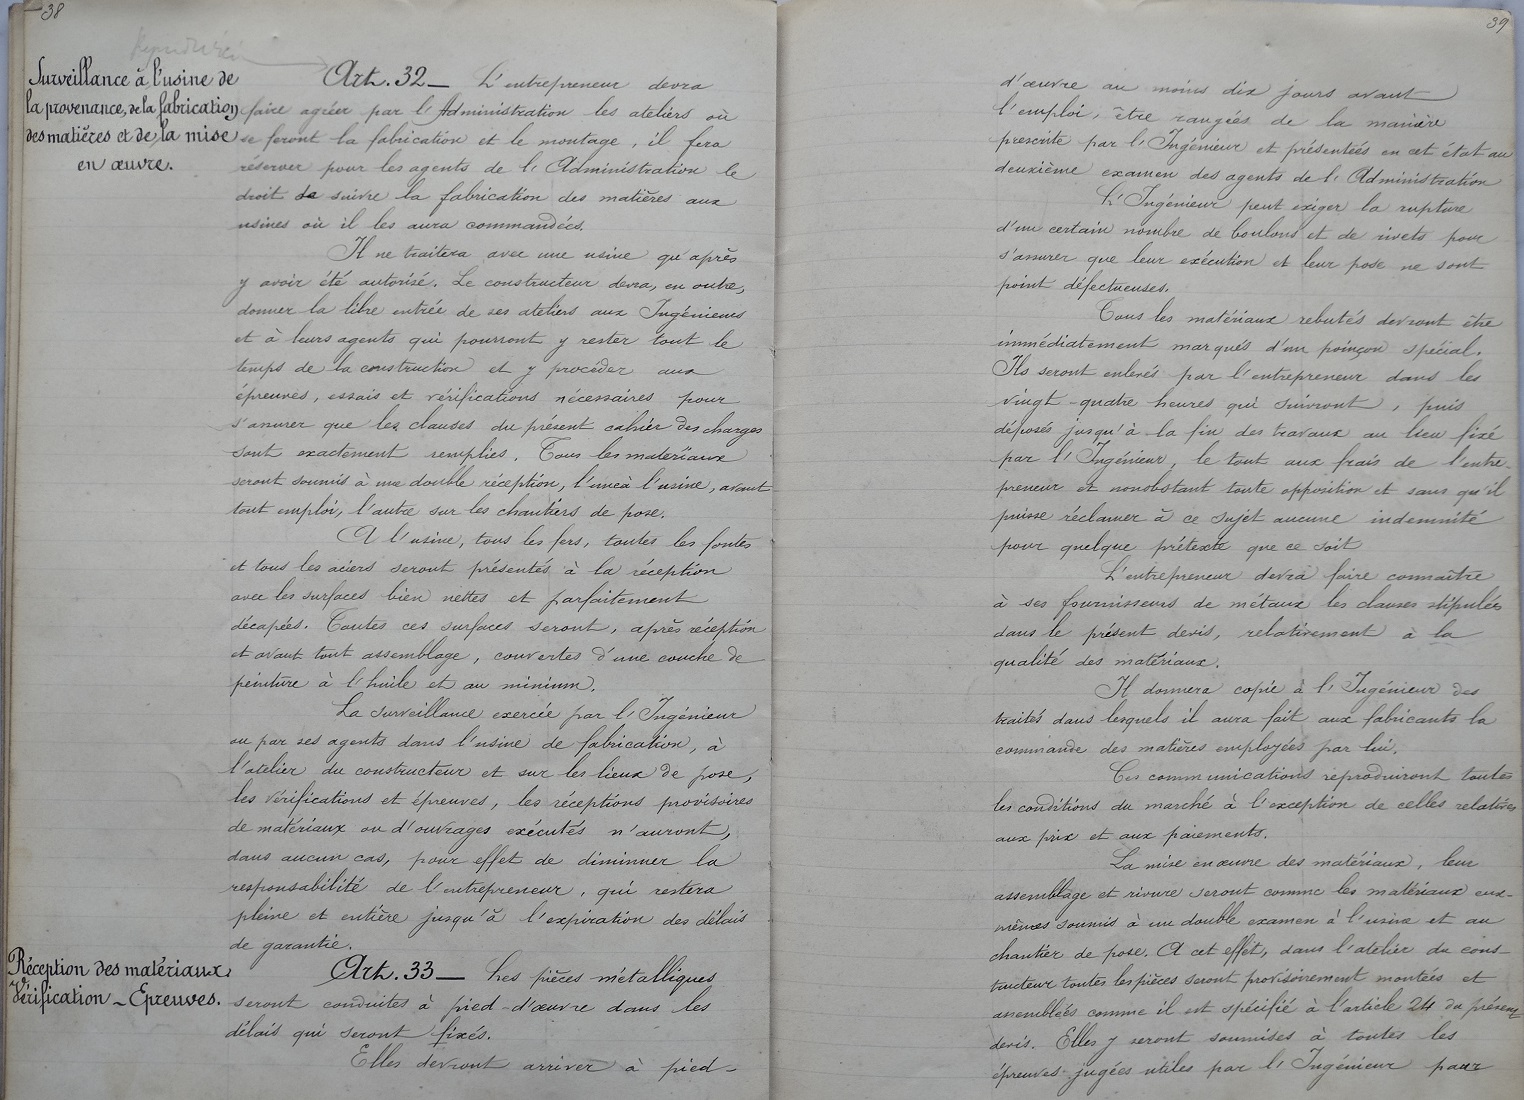 38
Surveillance à l'usine de
la provenance, de la fabrication
des matières et de la mise
en œuvre.
Art. 32 — L'entrepreneur devra
faire agréer par l'Administration les ateliers où
se feront la fabrication et le montage, il fera
réserver pour les agents de l'Administration le
droit de suivre la fabrication des matières aux
usines où il les aura commandées.
Il ne traitera avec une usine qu'après
y avoir été autorisé. Le constructeur devra, en outre,
donner la libre entrée de ses ateliers aux Ingénieurs
et à leurs agents qui pourront y rester tout le
temps de la construction et y procéder aux
épreuves, essais et vérifications nécessaires pour
s'assurer que les clauses du présent cahier des charges
sont exactement remplies. Tous les matériaux
seront soumis à une double réception, l'une à l'usine, avant
tout emploi, l'autre sur les chantiers de pose.
A l'usine, tous les fers, toutes les fontes
et tous les aciers seront présentés à la réception
avec les surfaces bien nettes et parfaitement
décapées. Toutes ces surfaces seront, après réception
et avant tout assemblage, couvertes d'une couche de
peinture à l'huile et au minium.
La surveillance exercée par l'Ingénieur
ou par ses agents dans l'usine de fabrication, à
l'atelier du constructeur et sur les lieux de pose,
les vérifications et épreuves, les réceptions provisoires
de matériaux ou d'ouvrages exécutés n'auront,
dans aucun cas, pour effet de diminuer la
responsabilité de l'entrepreneur, qui restera
pleine et entière jusqu'à l'expiration des délais
de garantie.
Réception des matériaux.
Vérification - Epreuves.
Art. 33 — Les pièces métalliques
seront conduites à pied-d'œuvre dans les
délais qui seront fixés.
Elles devront arriver à pied-
39
d'œuvre au moins dix jours avant
l'emploi, être rangées de la manière
prescrite par l'Ingénieur et présentées en cet état au
deuxième examen des agents de l'Administration
L'Ingénieur peut exiger la rupture
d'un certain nombre de boulons et de rivets pour
s'assurer que leur exécution et leur pose ne sont
point défectueuses.
Tous les matériaux rebutés devront être
immédiatement marqués d'un poinçon spécial.
Ils seront enlevés par l'entrepreneur dans les
vingt-quatre heures qui suivront, puis
déposés jusqu'à la fin des travaux au lieu fixé
par l'Ingénieur, le tout aux frais de l'entre-
preneur et nonobstant toute opposition et sans qu'il
puisse réclamer à ce sujet aucune indemnité
pour quelque prétexte que ce soit
L'entrepreneur devra faire connaître
à ses fournisseurs de métaux les clauses stipulées
dans le présent devis, relativement à la
qualité des matériaux.
Il donnera copie à l'Ingénieur des
traités dans lesquels il aura fait aux fabricants la
commande des matières employées par lui.
Ces communications reproduiront toutes
les conditions du marché à l'exception de celles relatives
aux prix et aux paiements.
La mise en œuvre des matériaux, leur
assemblage et rivure seront comme les matériaux eux-
mêmes soumis à un double examen à l'usine et au
chantier de pose. A cet effet, dans l'atelier du cons-
tructeur toutes les pièces seront provisoirement montées et
assemblées comme il est spécifié à l'article 24 du présent
devis. Elles y seront soumises à toutes les
épreuves jugées utiles par l'Ingénieur pour